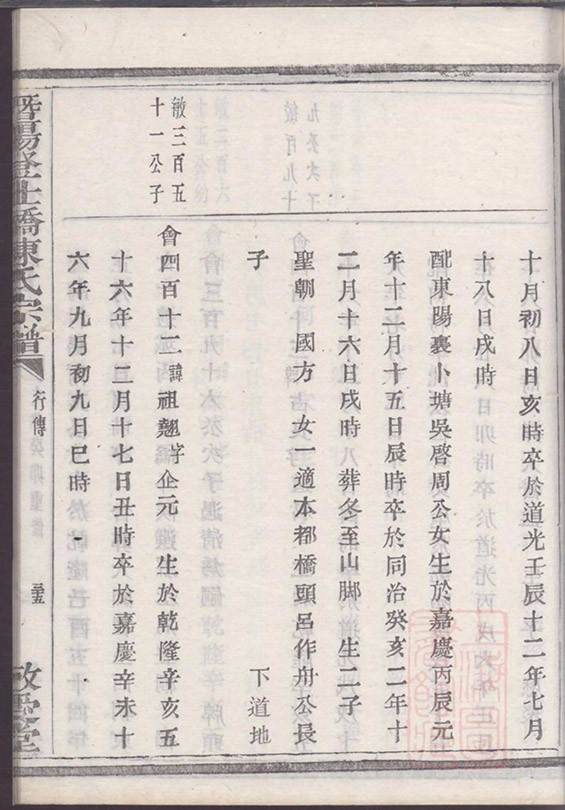 十月初八日亥時卒於道光壬辰十二年七月
十八日戌時
配東陽裹小塘吳啓周公女生於嘉慶丙辰元
年十二月十五日辰時卒於同治癸亥二年十
二月十六日戌時八葬冬至山脚 生二子
聖朝 國方 女一適本都橋頭呂作舟公長
子 下道地
敏三百五
十一公子
會四百十二諱祖翹字企元 生於乾隆辛亥五
十六年十二月十七日丑時卒於嘉慶辛未十
六年九月初九日巳時
暨陽登仕橋陳氏宗譜
行傳 癸卯重修